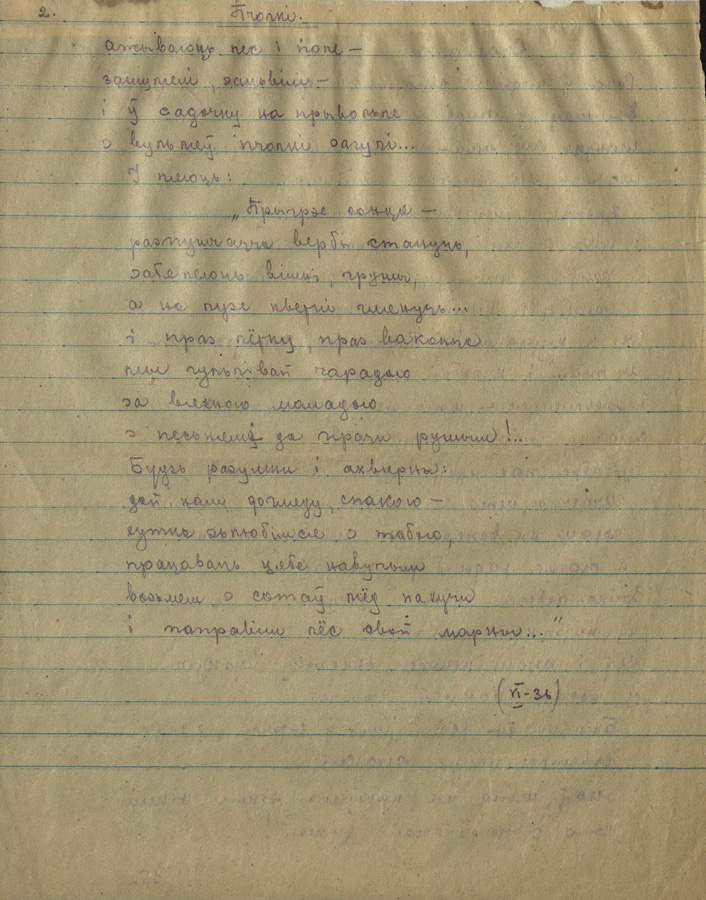 2. Пчолкі.
ажываюць лес і поле —
зашумелі, —
і ў садочку на прывольле
з вульлеў пчолкі загулі...
І пяюць:
„Прыгрэе сонца —
распушчацца вербы стануць,
забялеюць вішні, грушы,
а на лузе кветкі глянуць...
і праз гёрку, праз ваконца
мы чарадою
за вясною маладою
з песьнямі да працы рушым!..
Будзь разумны і ахвярны:
дай нам догляду, спакою —
хутка зьлюбімся з табою,
працаваць цябе навучым
возьмем з сотаў мёд пахучы
і паправім лёс свой марны..."
(VI-36)